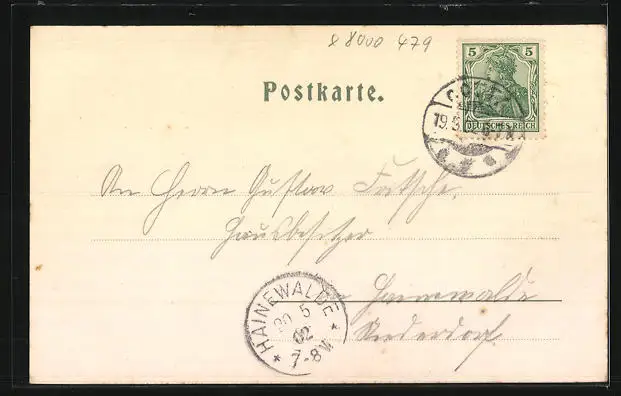 & 8000 479
5 5
DEUTSCHES REICH
Postkarte.
19.5
An Herrn Gustav
Hausbesitzer
in Hainewalde
Niederdorf.
HAINEWALDE
20 5
02
7-8V.